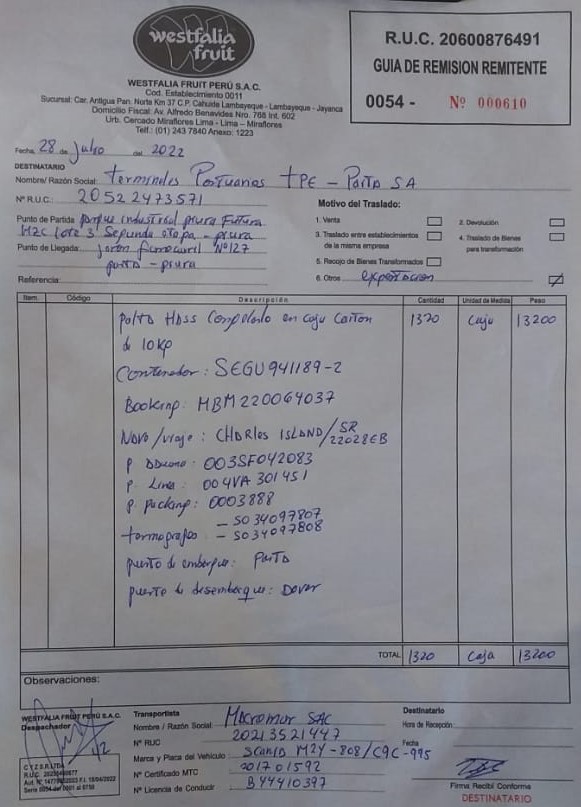 westfalia
fruit
WESTFALIA FRUIT PERÚ S.A.C.
Cod. Establecimiento 0011
Sucursal: Car. Antigua Pan. Norte Km 37 C.P. Cahuide Lambayeque - Lambayeque - Jayanca
Domicilio Fiscal: Av. Alfredo Benavides Nro. 768 Int. 602
Urb. Cercado Miraflores Lima - Lima – Miraflores
Telf.: (01) 243 7840 Anexo: 1223
R.U.C. 20600876491
GUIA DE REMISION REMITENTE
0054 - Nº 000610
Fecha, 28 de Julio del 2022
DESTINATARIO
Nombre/ Razón Social: Terminales Portuarios TPE - Paita SA
Nº R.U.C.: 20522473571
Punto de Partida: parque industrial piura Futura
MZC Lote 3 Segunda etapa - piura
Punto de Llegada: Nº 127
paita - piura
Referencia:
Motivo del Traslado:
1. Venta
2. Devolución
3. Traslado entre establecimientos
de la misma empresa
4. Traslado de Bienes
para transformación
5. Recojo de Bienes Transformados
6. Otros exportacion
Item. Código Descripción Cantidad Unidad de Medida Peso
Palta Hass Congelado en caja Carton 1320 Caja 13200
de 10kg
Contenedor: SEGU941189-2
Booking: MBM220064037
Nave/viaje: CHARLES ISLAND/SR
22028EB
P Aduana: 003SF042083
P. Linea: 004VA301451
P Packing: 0003888
- SO34097807
termografos - SO34097808
puerto de embarque: Paita
puerto de desembarque: Dover
TOTAL 1320 Caja 13200
Observaciones:
WESTFALIA FRUIT PERÚ S.A.C.
Despachador
Transportista
Nombre / Razón Social: Macromar SAC
Nº RUC 20213521447
Marca y Placa del Vehículo Scania M2Y-808/C9C-995
Nº Certificado MTC
Nº Licencia de Conducir B44410397
Destinatario
Hora de Recepción:
Fecha
Firma Recibí Conforme
DESTINATARIO